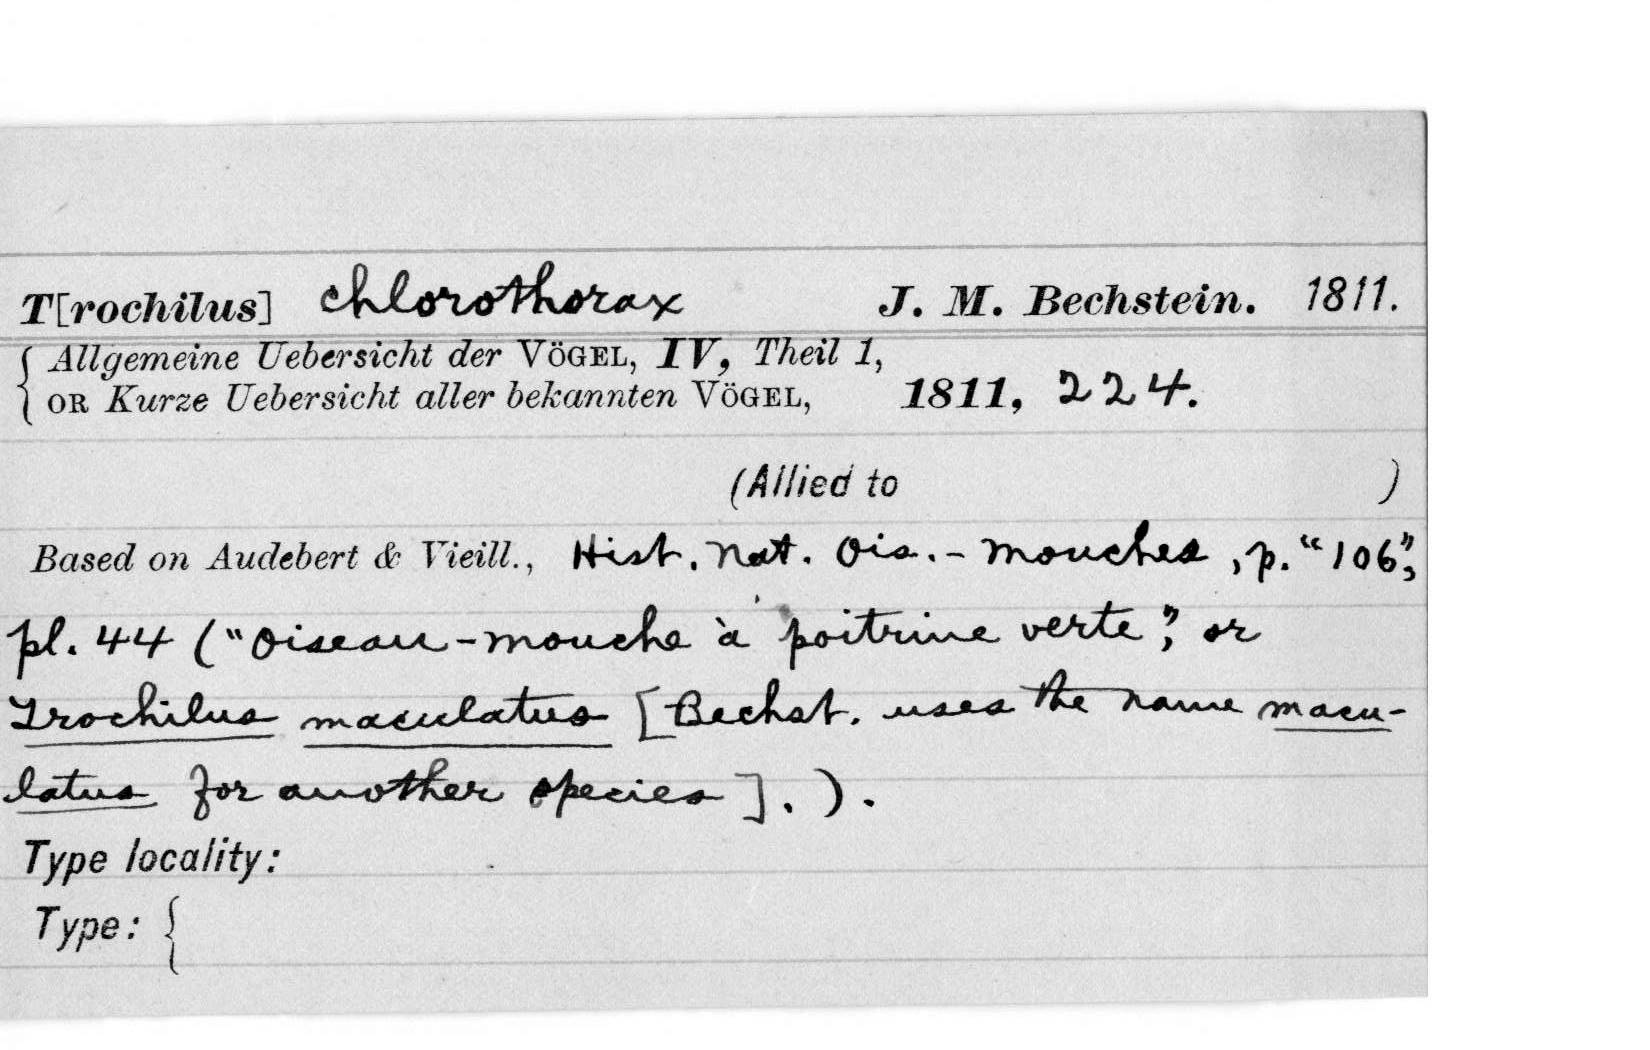 T[rochilus] chlorothorax J. M. Bechstein. 1811.
{ Allgemeine Uebersicht der VÖGEL, IV, Theil 1,
OR Kurze Uebersicht aller bekannten VÖGEL, 1811, 224.
(Allied to )
Based on Audebert & Vieill., Hist. Nat. Ois.-mouches, p. "106",
pl. 44 ("Oiseau-mouche à poitrine verte", or
Trochilus maculatus [Bechst. uses the name macu-
latus for another species].).
Type locality:
Type: {